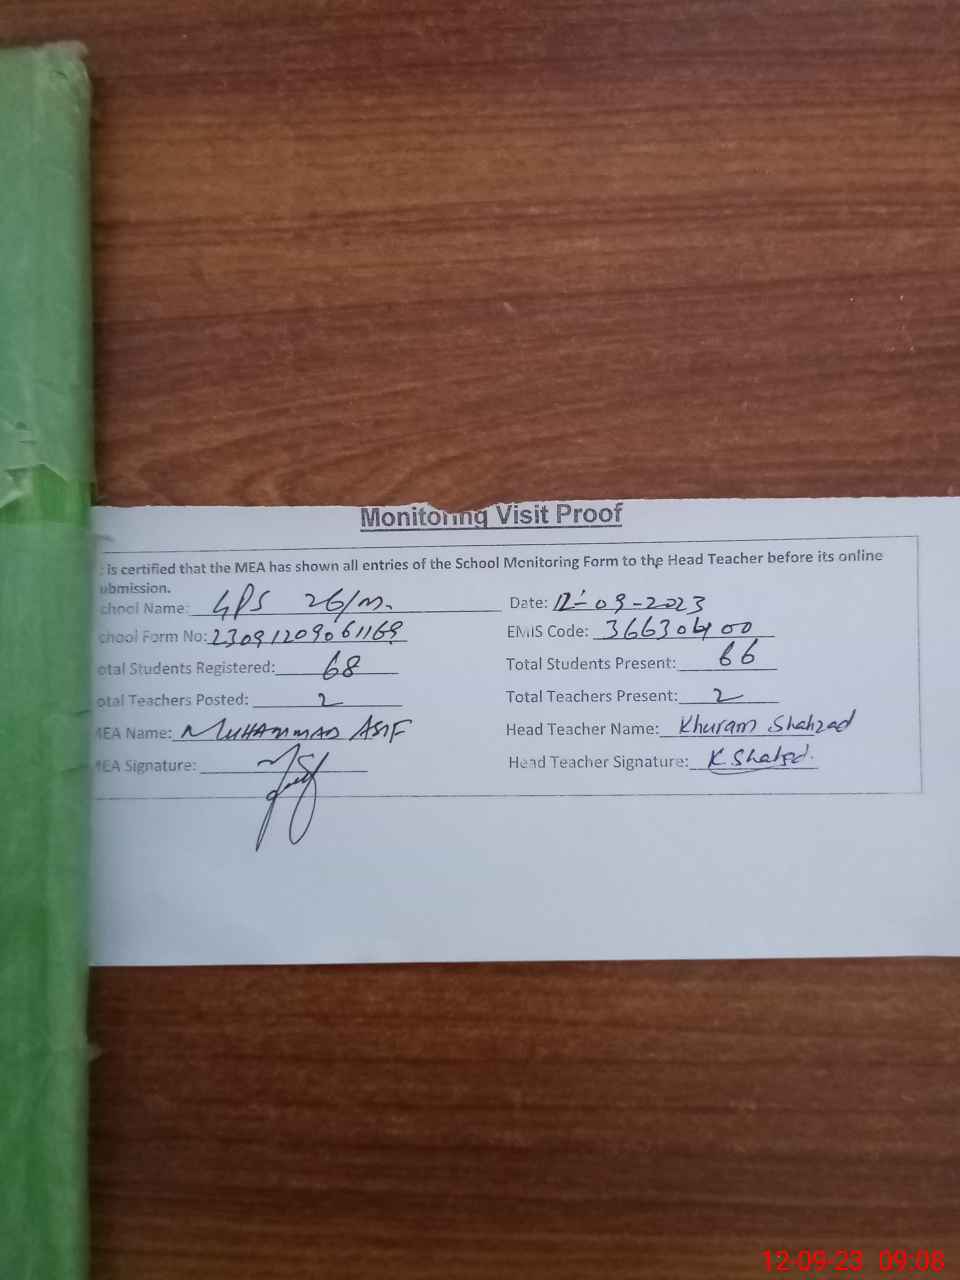 Monitoring Visit Proof
: is certified that the MEA has shown all entries of the School Monitoring Form to the Head Teacher before its online
ubmission.
chool Name: GPS 26/M. Date: 12-09-2023
chool Form No: 23091209061169 EMIS Code: 36630400
otal Students Registered: 68 Total Students Present: 66
otal Teachers Posted: 2 Total Teachers Present: 2
MEA Name: MUHAMMAD ASIF Head Teacher Name: Khuram Shahzad
MEA Signature: Head Teacher Signature: K Shahzd.
12-09-23 09:08